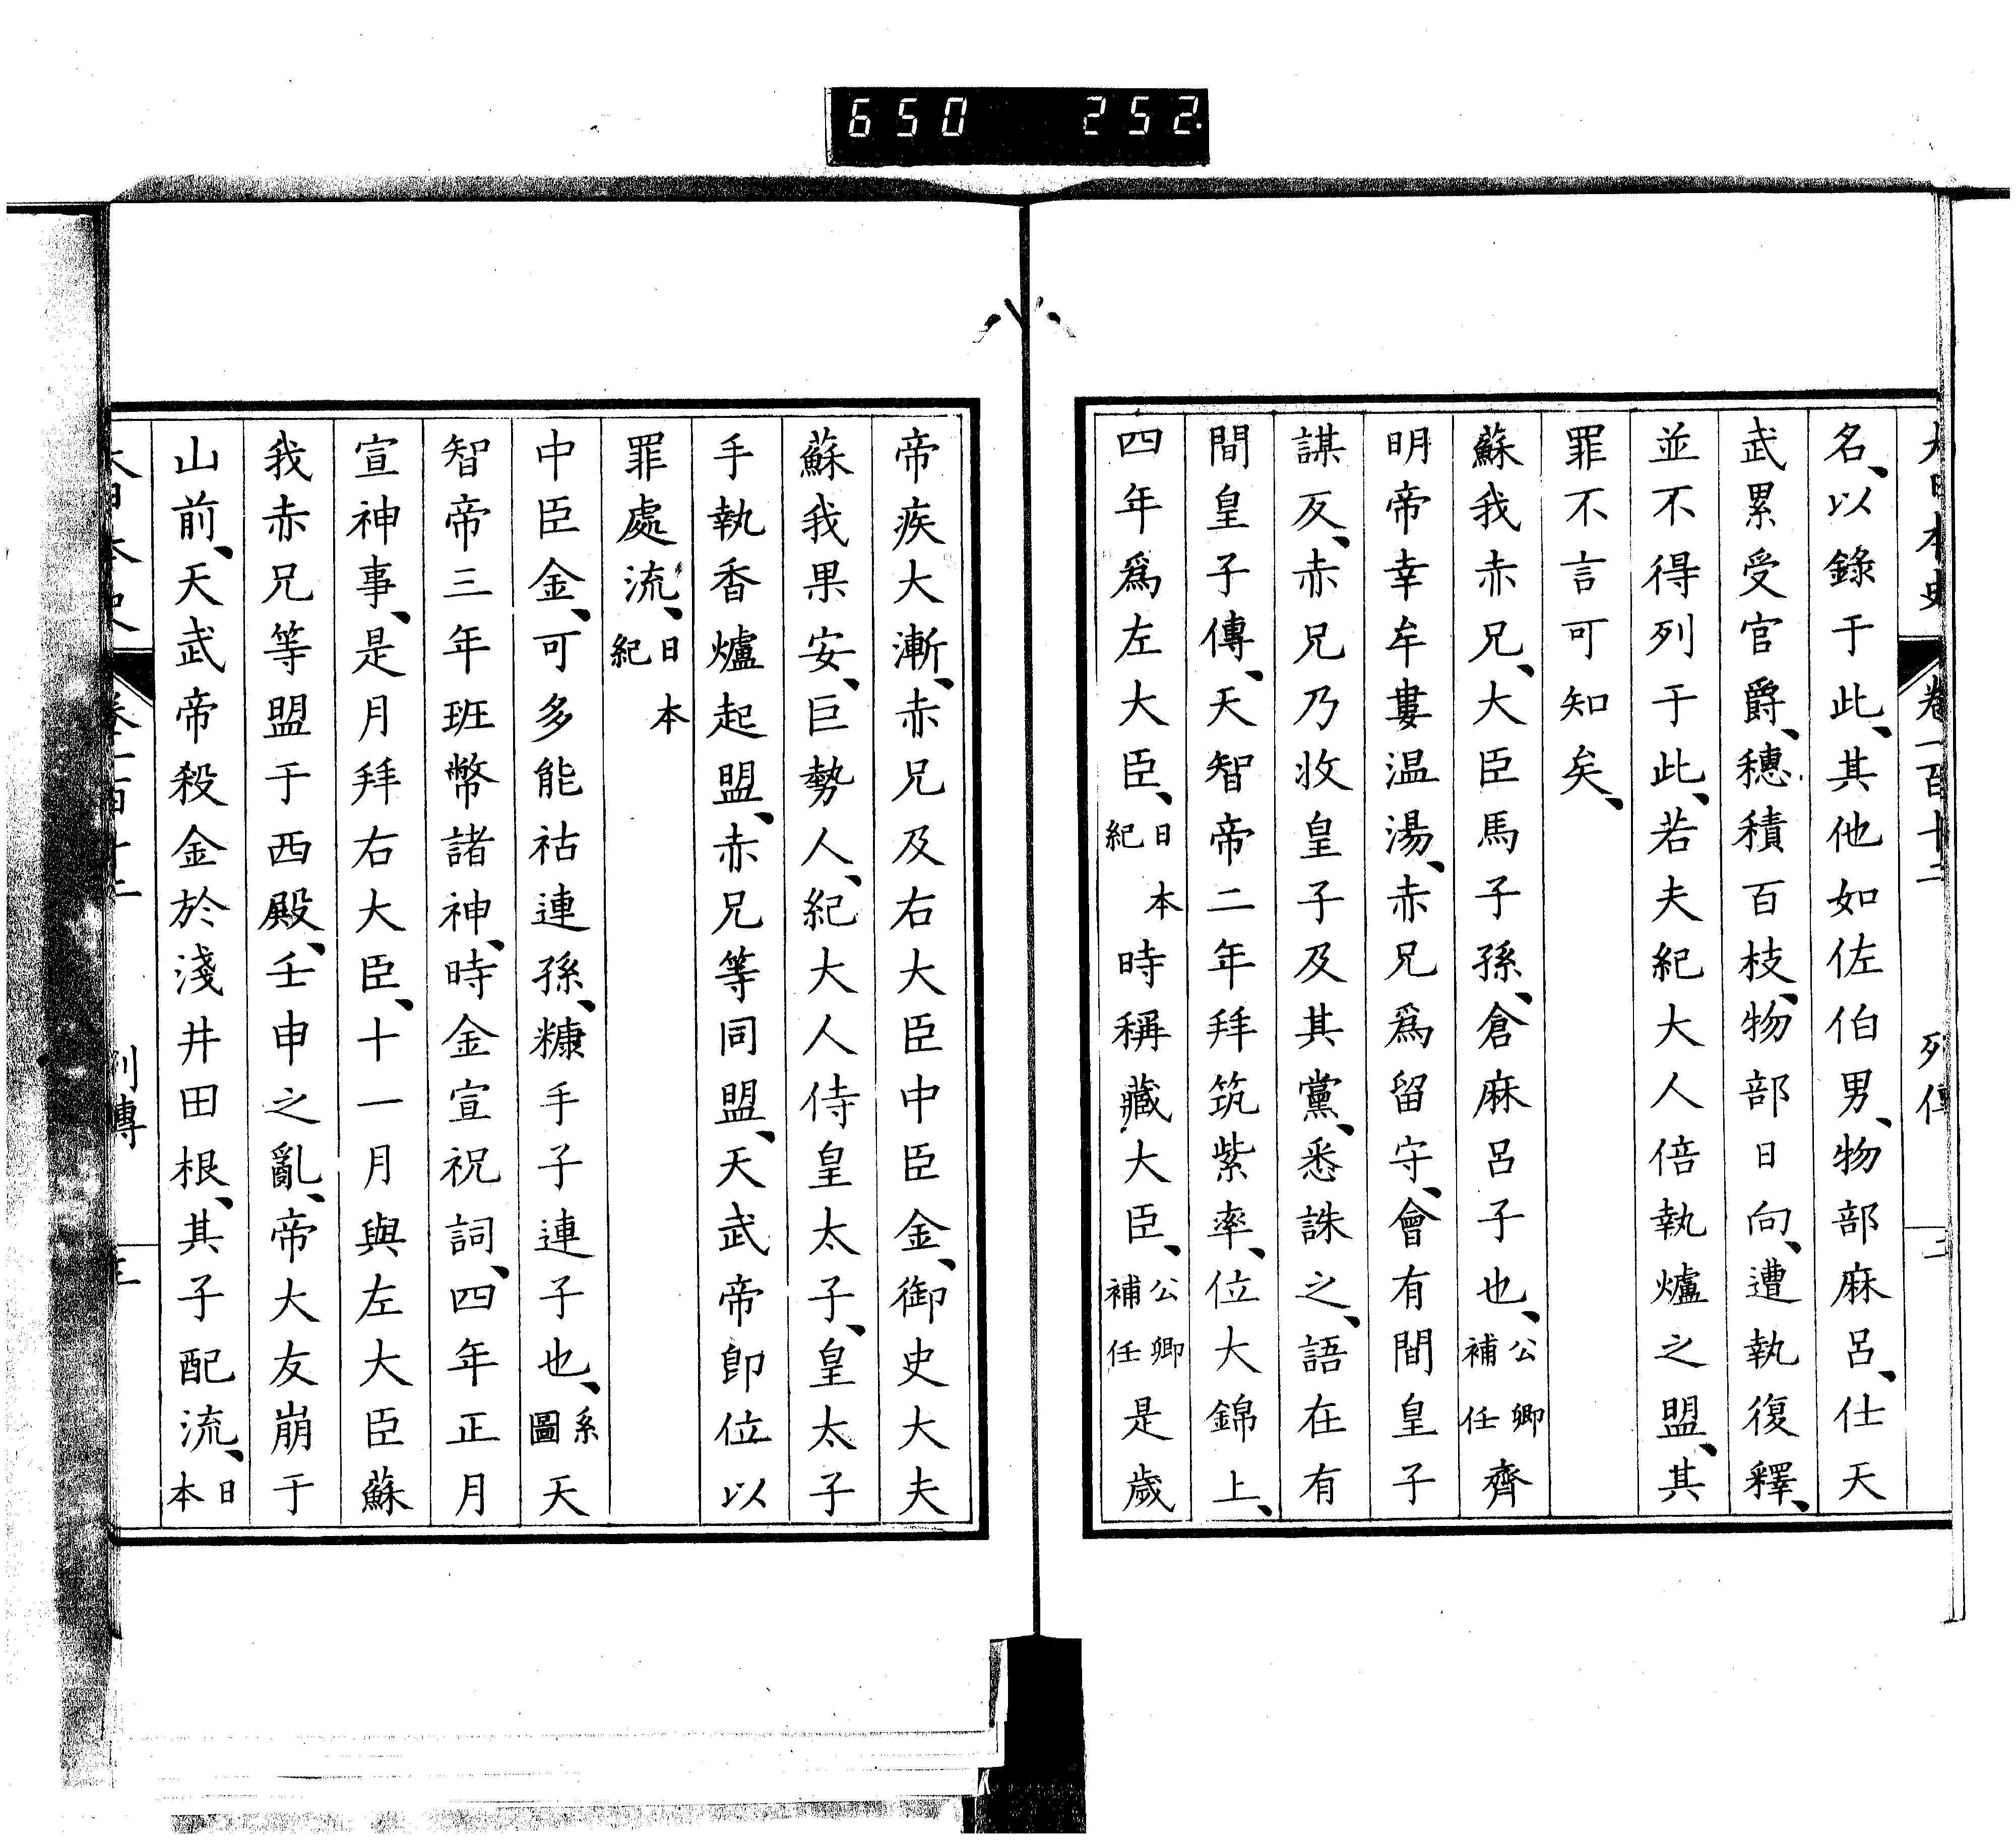 650 252
大日本史 卷一百十二 列傳 二
名、以錄于此、其他如佐伯男、物部麻呂、仕天
武累受官爵、穗積百枝、物部日向、遭執復釋、
並不得列于此、若夫紀大人倍執爐之盟、其
罪不言可知矣、
蘇我赤兄、大臣馬子孫、倉麻呂子也、公卿補任齊
明帝幸牟婁温湯、赤兄爲留守、會有間皇子
謀反、赤兄乃收皇子及其黨、悉誅之、語在有
間皇子傳、天智帝二年拜筑紫率、位大錦上、
四年爲左大臣、日本紀時稱藏大臣、公卿補任是歲
帝疾大漸、赤兄及右大臣中臣金、御史大夫
蘇我果安、巨勢人、紀大人侍皇太子、皇太子
手執香爐起盟、赤兄等同盟、天武帝卽位以
罪處流、日本紀
中臣金、可多能祜連孫、糠手子連子也、系圖天
智帝三年班幣諸神、時金宣祝詞、四年正月
宣神事、是月拜右大臣、十一月與左大臣蘇
我赤兄等盟于西殿、壬申之亂、帝大友崩于
山前、天武帝殺金於淺井田根、其子配流、日本
大日本史 卷一百十二 列傳 三